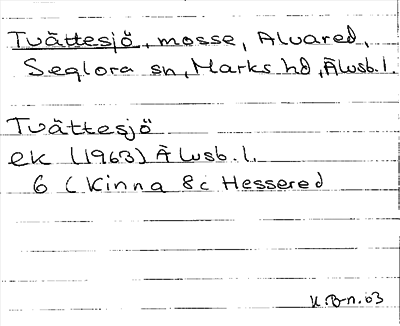 Tvättesjö, mosse, Alvared,
Seglora sn, Marks hd, Älvsb. l.
Tvättesjö
ek (1963) Älvsb. l.
6 ( Kinna 8c Hessered